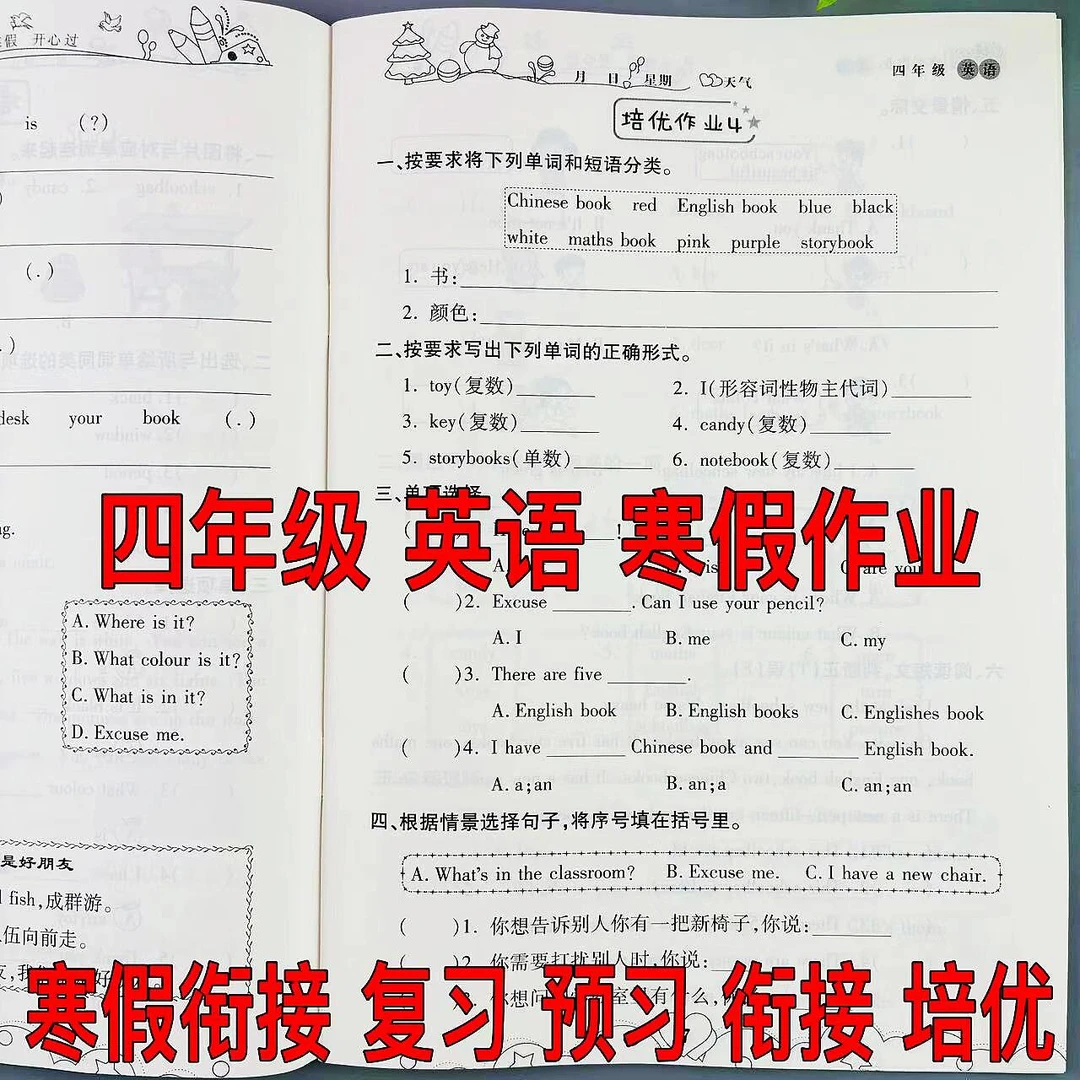 假 开心过
is (?)
(.)
desk your book (.)
A. Where is it?
B. What colour is it?
C. What is in it?
D. Excuse me.
是好朋友
fish,成群游。
伍向前走。
月 日 星期 天气
四年级 英语
培优作业4
一、按要求将下列单词和短语分类。
Chinese book red English book blue black
white maths book pink purple storybook
1. 书:
2. 颜色:
二、按要求写出下列单词的正确形式。
1. toy(复数) 2. I(形容词性物主代词)
3. key(复数) 4. candy(复数)
5. storybooks(单数) 6. notebook(复数)
三、单项选择
四年级 英语 寒假作业
( )2. Excuse ________. Can I use your pencil?
A. I B. me C. my
( )3. There are five ________.
A. English book B. English books C. Englishes book
( )4. I have ________ Chinese book and ________ English book.
A. a;an B. an;a C. an;an
四、根据情景选择句子,将序号填在括号里。
A. What's in the classroom? B. Excuse me. C. I have a new chair.
( )1. 你想告诉别人你有一把新椅子,你说:
( )2. 你需要打扰别人时,你说:
寒假衔接 复习 预习 衔接 培优